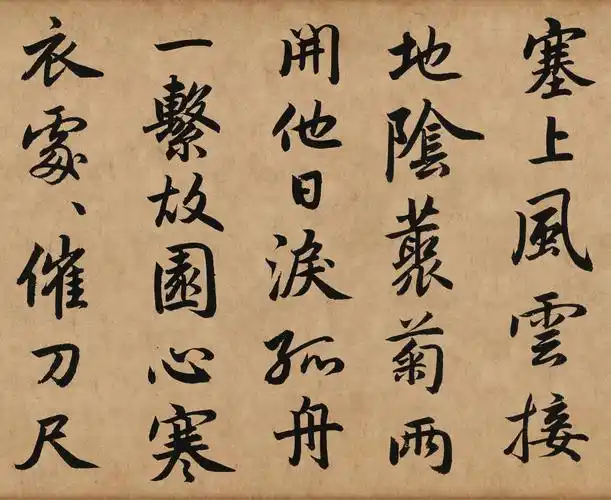 塞上風雲接
地陰叢菊兩
開他日淚孤舟
一繫故園心寒
衣處、催刀尺